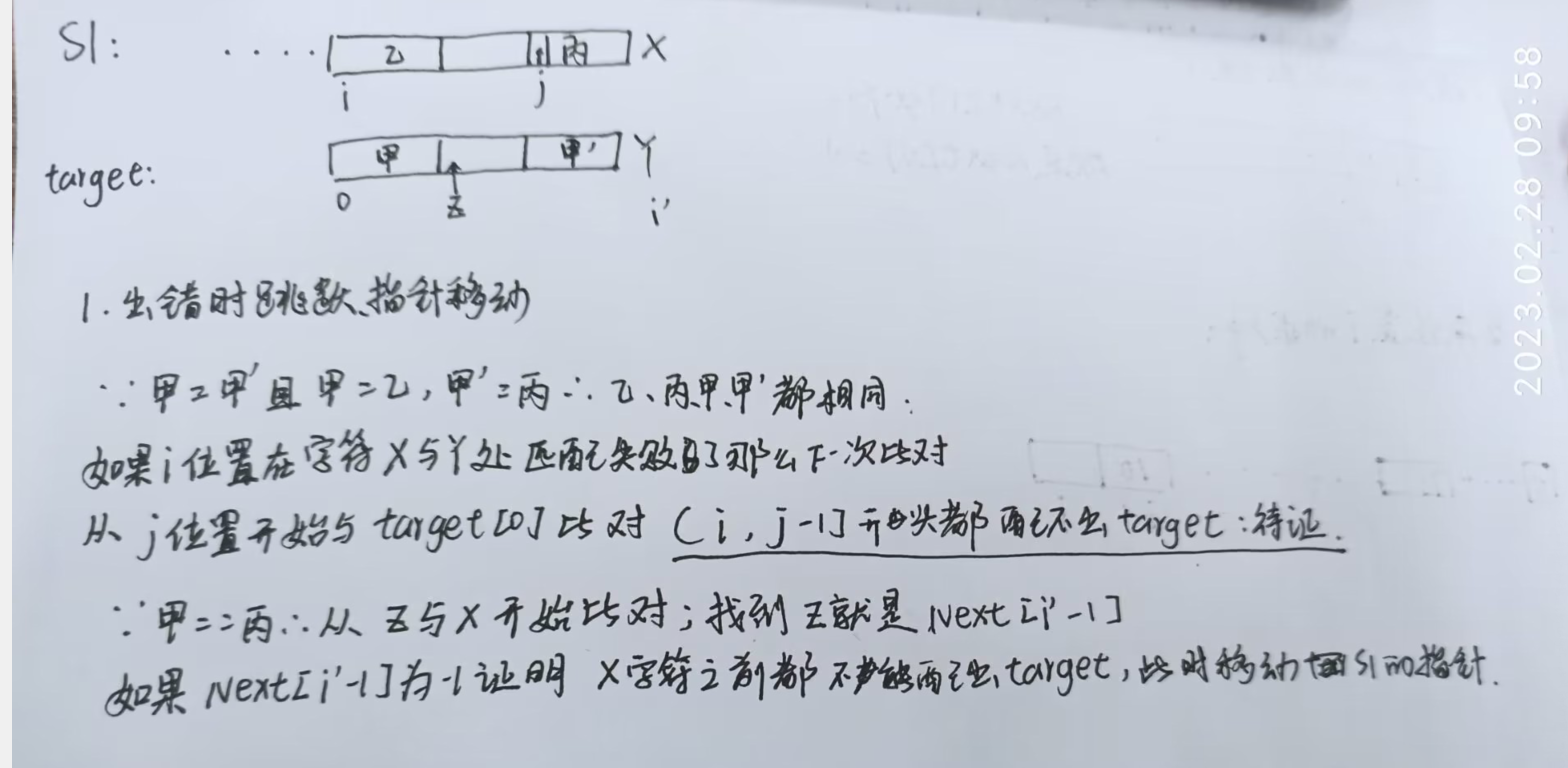 S1: ····乙 丙 X
i j
target: 甲 甲' Y
0 Z i'
1.出错时跳数、指针移动
∵甲=甲'且甲=乙,甲'=丙∴乙、丙、甲、甲'都相同.
如果i位置在字符X与Y处匹配失败了那么下一次比对
从j位置开始与target[0]比对 (i,j-1]开头都配不出target:待证.
∵甲==丙∴从Z与X开始比对;找到Z就是Next[i'-1]
如果Next[i'-1]为-1证明X字符之前都不能配出target,此时移动S1的指针.
2023.02.28 09:58